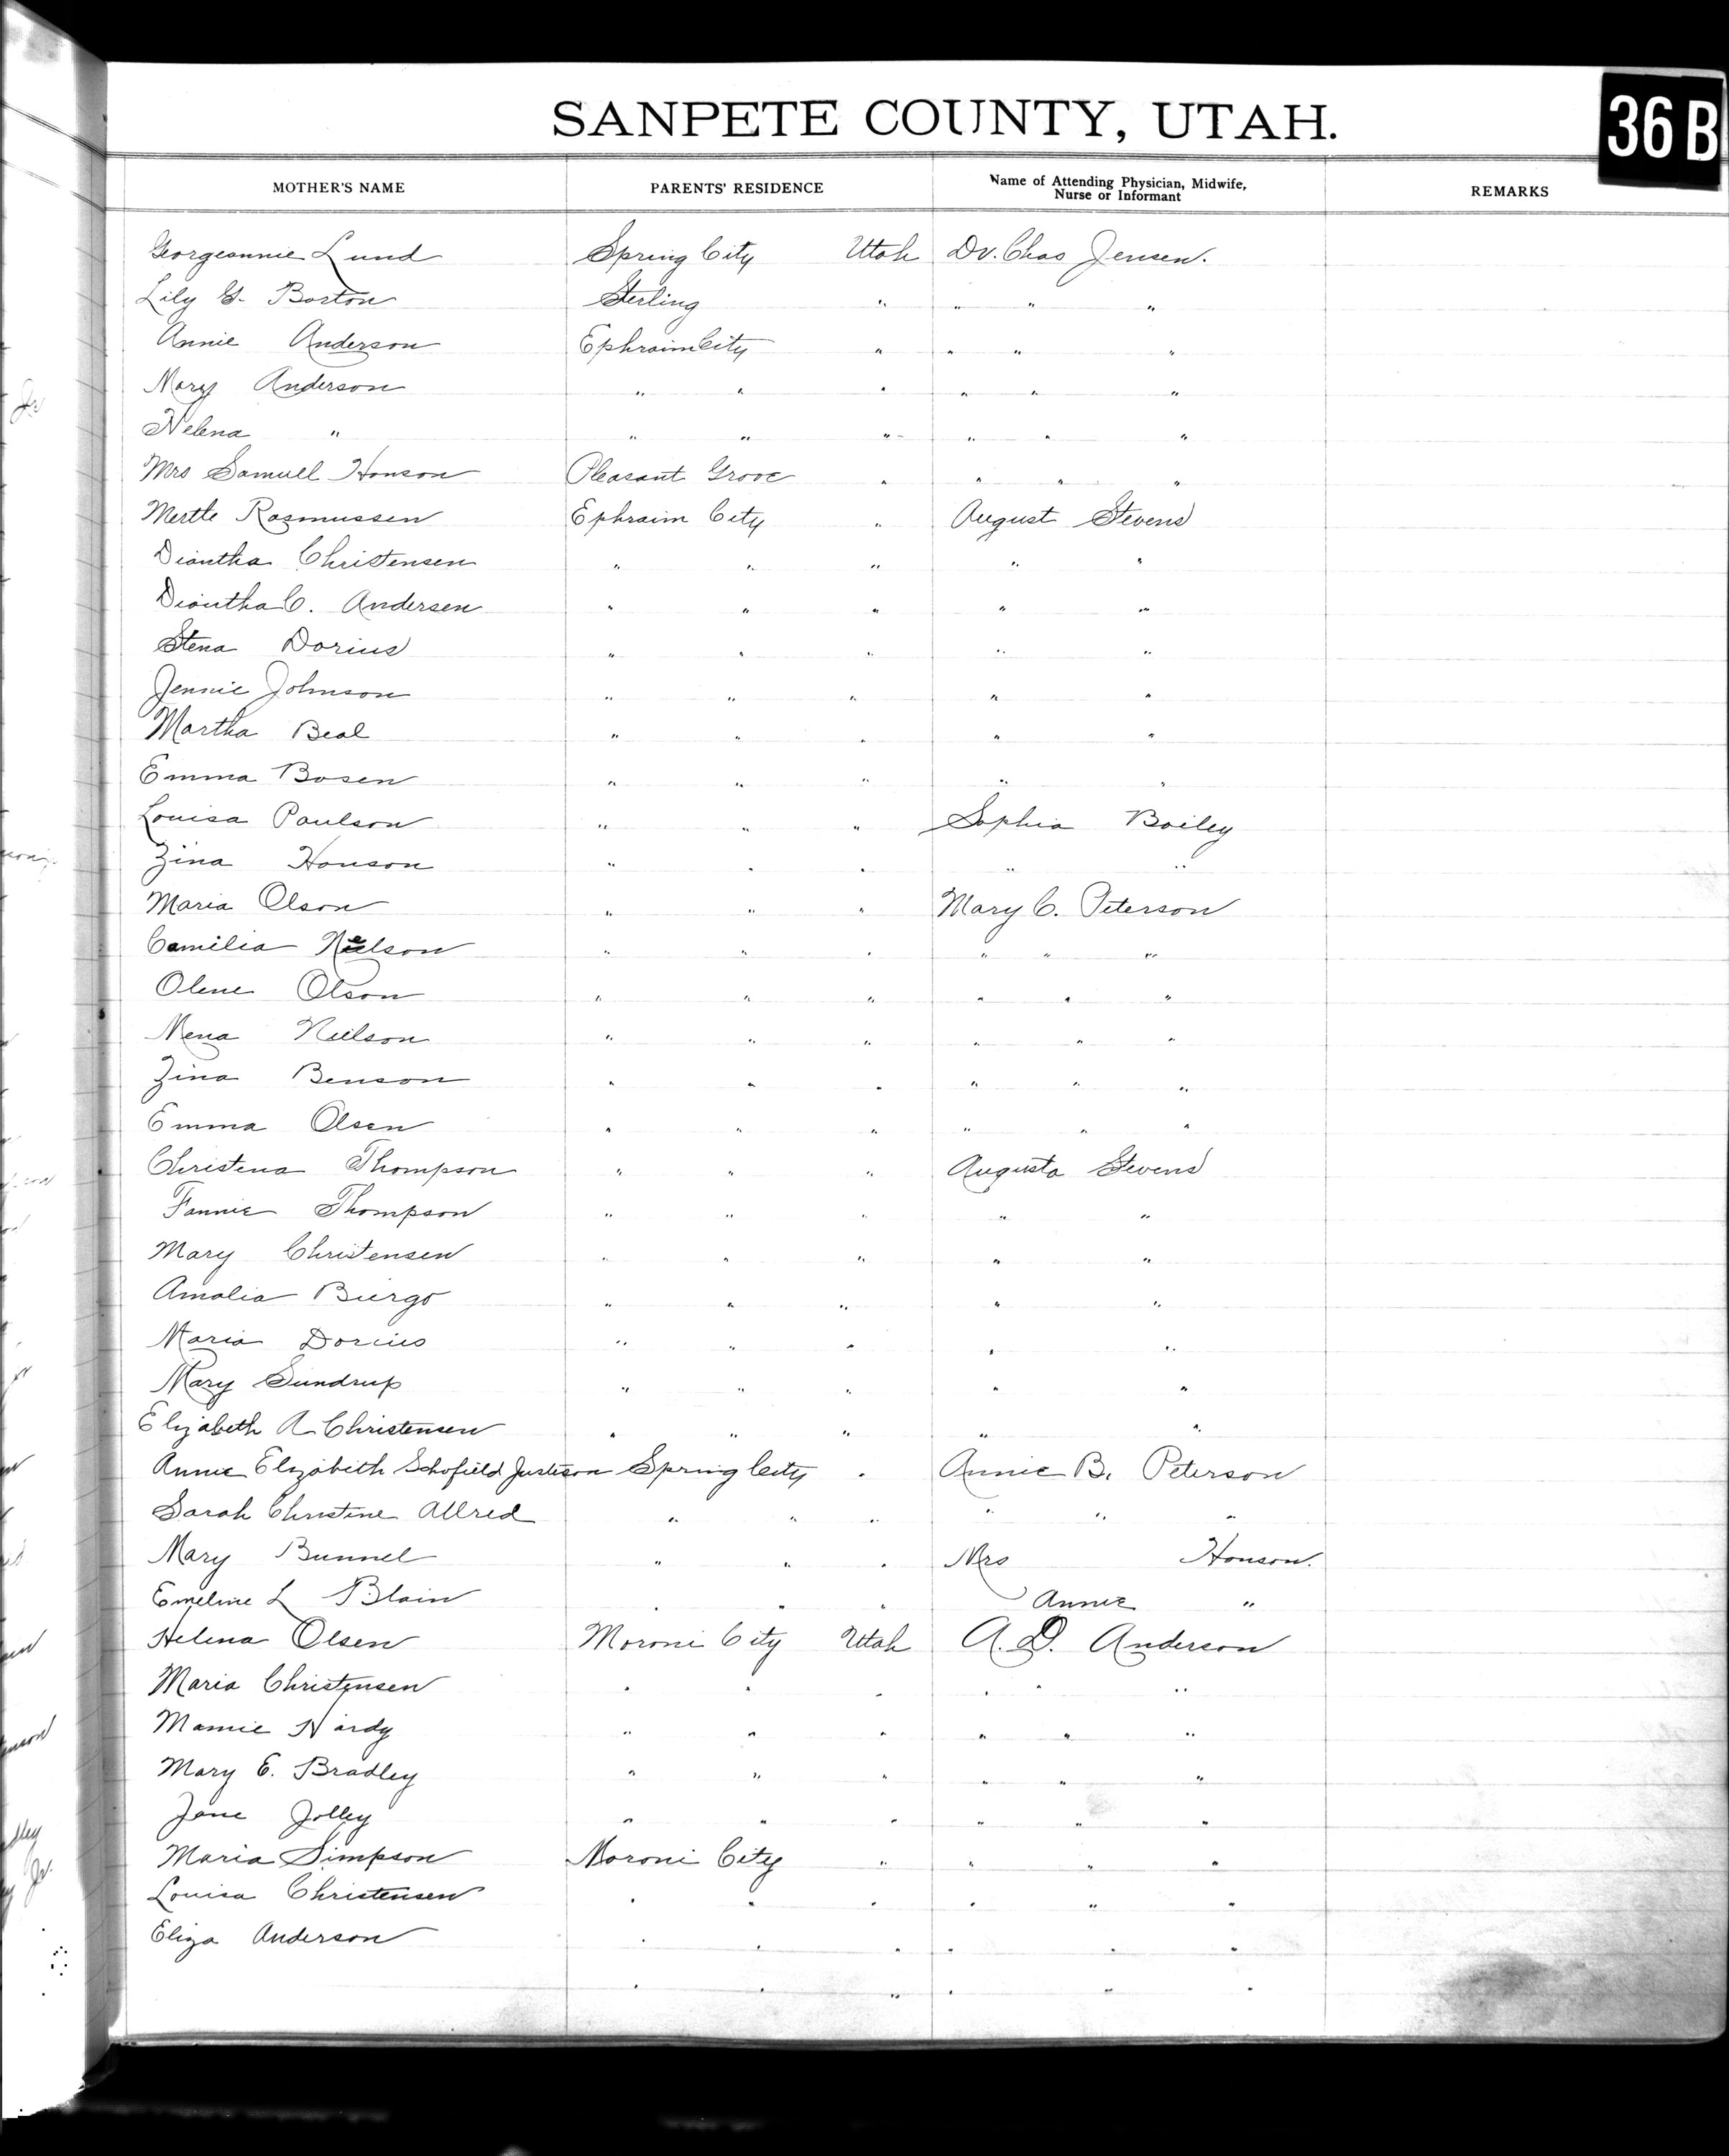 SANPETE COUNTY, UTAH.
36 B
MOTHER'S NAME PARENTS' RESIDENCE Name of Attending Physician, Midwife, Nurse or Informant REMARKS
Georgeannie Lund Spring City Utah Dr. Chas Jensen.
Lily G. Barton Sterling " " " "
Annie Anderson Ephraim City " " " "
Mary Anderson " " " " " "
Helena " " " " " " "
Mrs Samuell Hanson Pleasant Grove " " " "
Mertle Rasmussen Ephraim City " August Stevens
Diantha Christensen " " " " "
Diantha C. Andersen " " " " "
Stena Dorius " " " " "
Jennie Johnson " " " " "
Martha Beal " " " " "
Emma Bosen " " " " "
Louisa Paulson " " " Sophia Bailey
Zina Hanson " " " " "
Maria Olson " " " Mary C. Peterson
Camilia Neelson " " " " " "
Olene Olson " " " " " "
Mena Nielson " " " " " "
Zina Benson " " " " " "
Emma Olsen " " " " " "
Christena Thompson " " " Augusta Stevens
Fannie Thompson " " " " "
Mary Christensen " " " " "
Amalia Buirgo " " " " "
Maria Dorius " " " " "
Mary Sundrup " " " " "
Elizabeth A Christensen " " " " "
Annie Elizabeth Schofield Justeson Spring City " Annie B. Peterson
Sarah Christine Allred " " " " " "
Mary Bunnel " " " Mrs Hanson.
Emeline L Blain " " " Annie "
Helena Olsen Moroni City Utah A. D. Anderson
Maria Christensen " " " " " "
Mamie Hardy " " " " " "
Mary E. Bradley " " " " " "
Jane Jolley " " " " " "
Maria Simpson Moroni City " " " "
Louisa Christensen " " " " " "
Eliza Anderson " " " " " "
" " " " " "